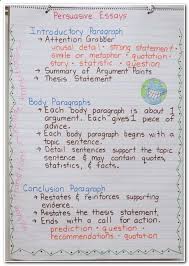 Persuasive Essays
Introductory Paragraph
→ Attention Grabber
unusual detail • strong statement
simile or metaphor • quotation
story • statistic • question
→ Summary of Argument Points
→ Thesis Statement
Body Paragraphs
→ Each body paragraph is about 1
argument. Each gives 1 piece of
advice.
→ Each body paragraph begins with a
topic sentence.
→ Detail sentences support the topic
sentence & may contain quotes,
statistics, & facts.
Conclusion Paragraph
→ Restates & reinforces supporting
evidence.
→ Restates the thesis statement.
→ Ends with a call for action.
prediction • question •
recommendations • quotation